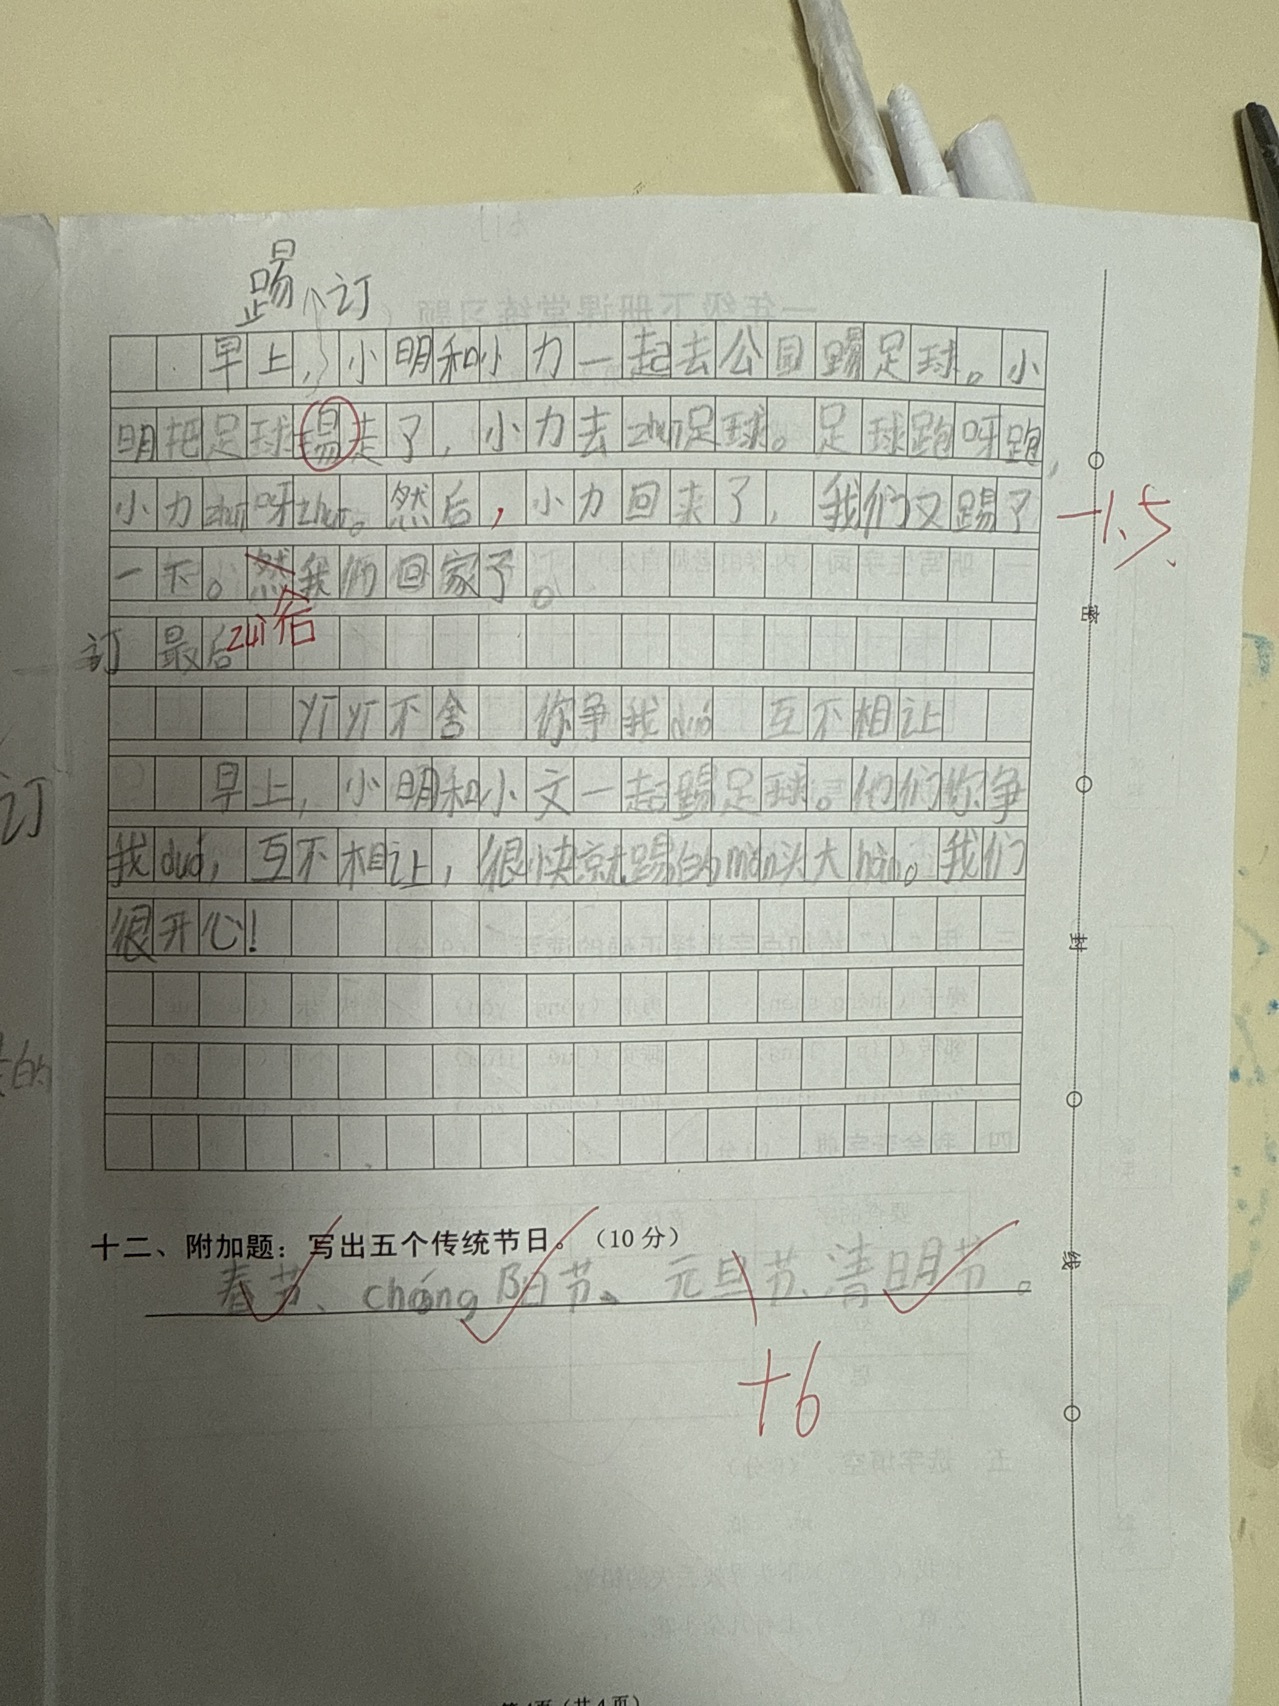 踢 订
早上,小明和小力一起去公园踢足球。小
明把足球踢走了,小力去zhuī足球。足球跑呀跑,
小力zhuī呀zhuī。然后,小力回来了,我们又踢了
-1.5
一下。然我们回家了。
zuì后
订 最后
yī yī不舍 你争我duó 互不相让
早上,小明和小文一起踢足球。他们你争
我duó,互不相让,很快就踢的mǎn头大hàn。我们
很开心!
订
的
密
封
线
十二、附加题:写出五个传统节日。(10分)
春节、chóng阳节、元旦节、清明节。
+6